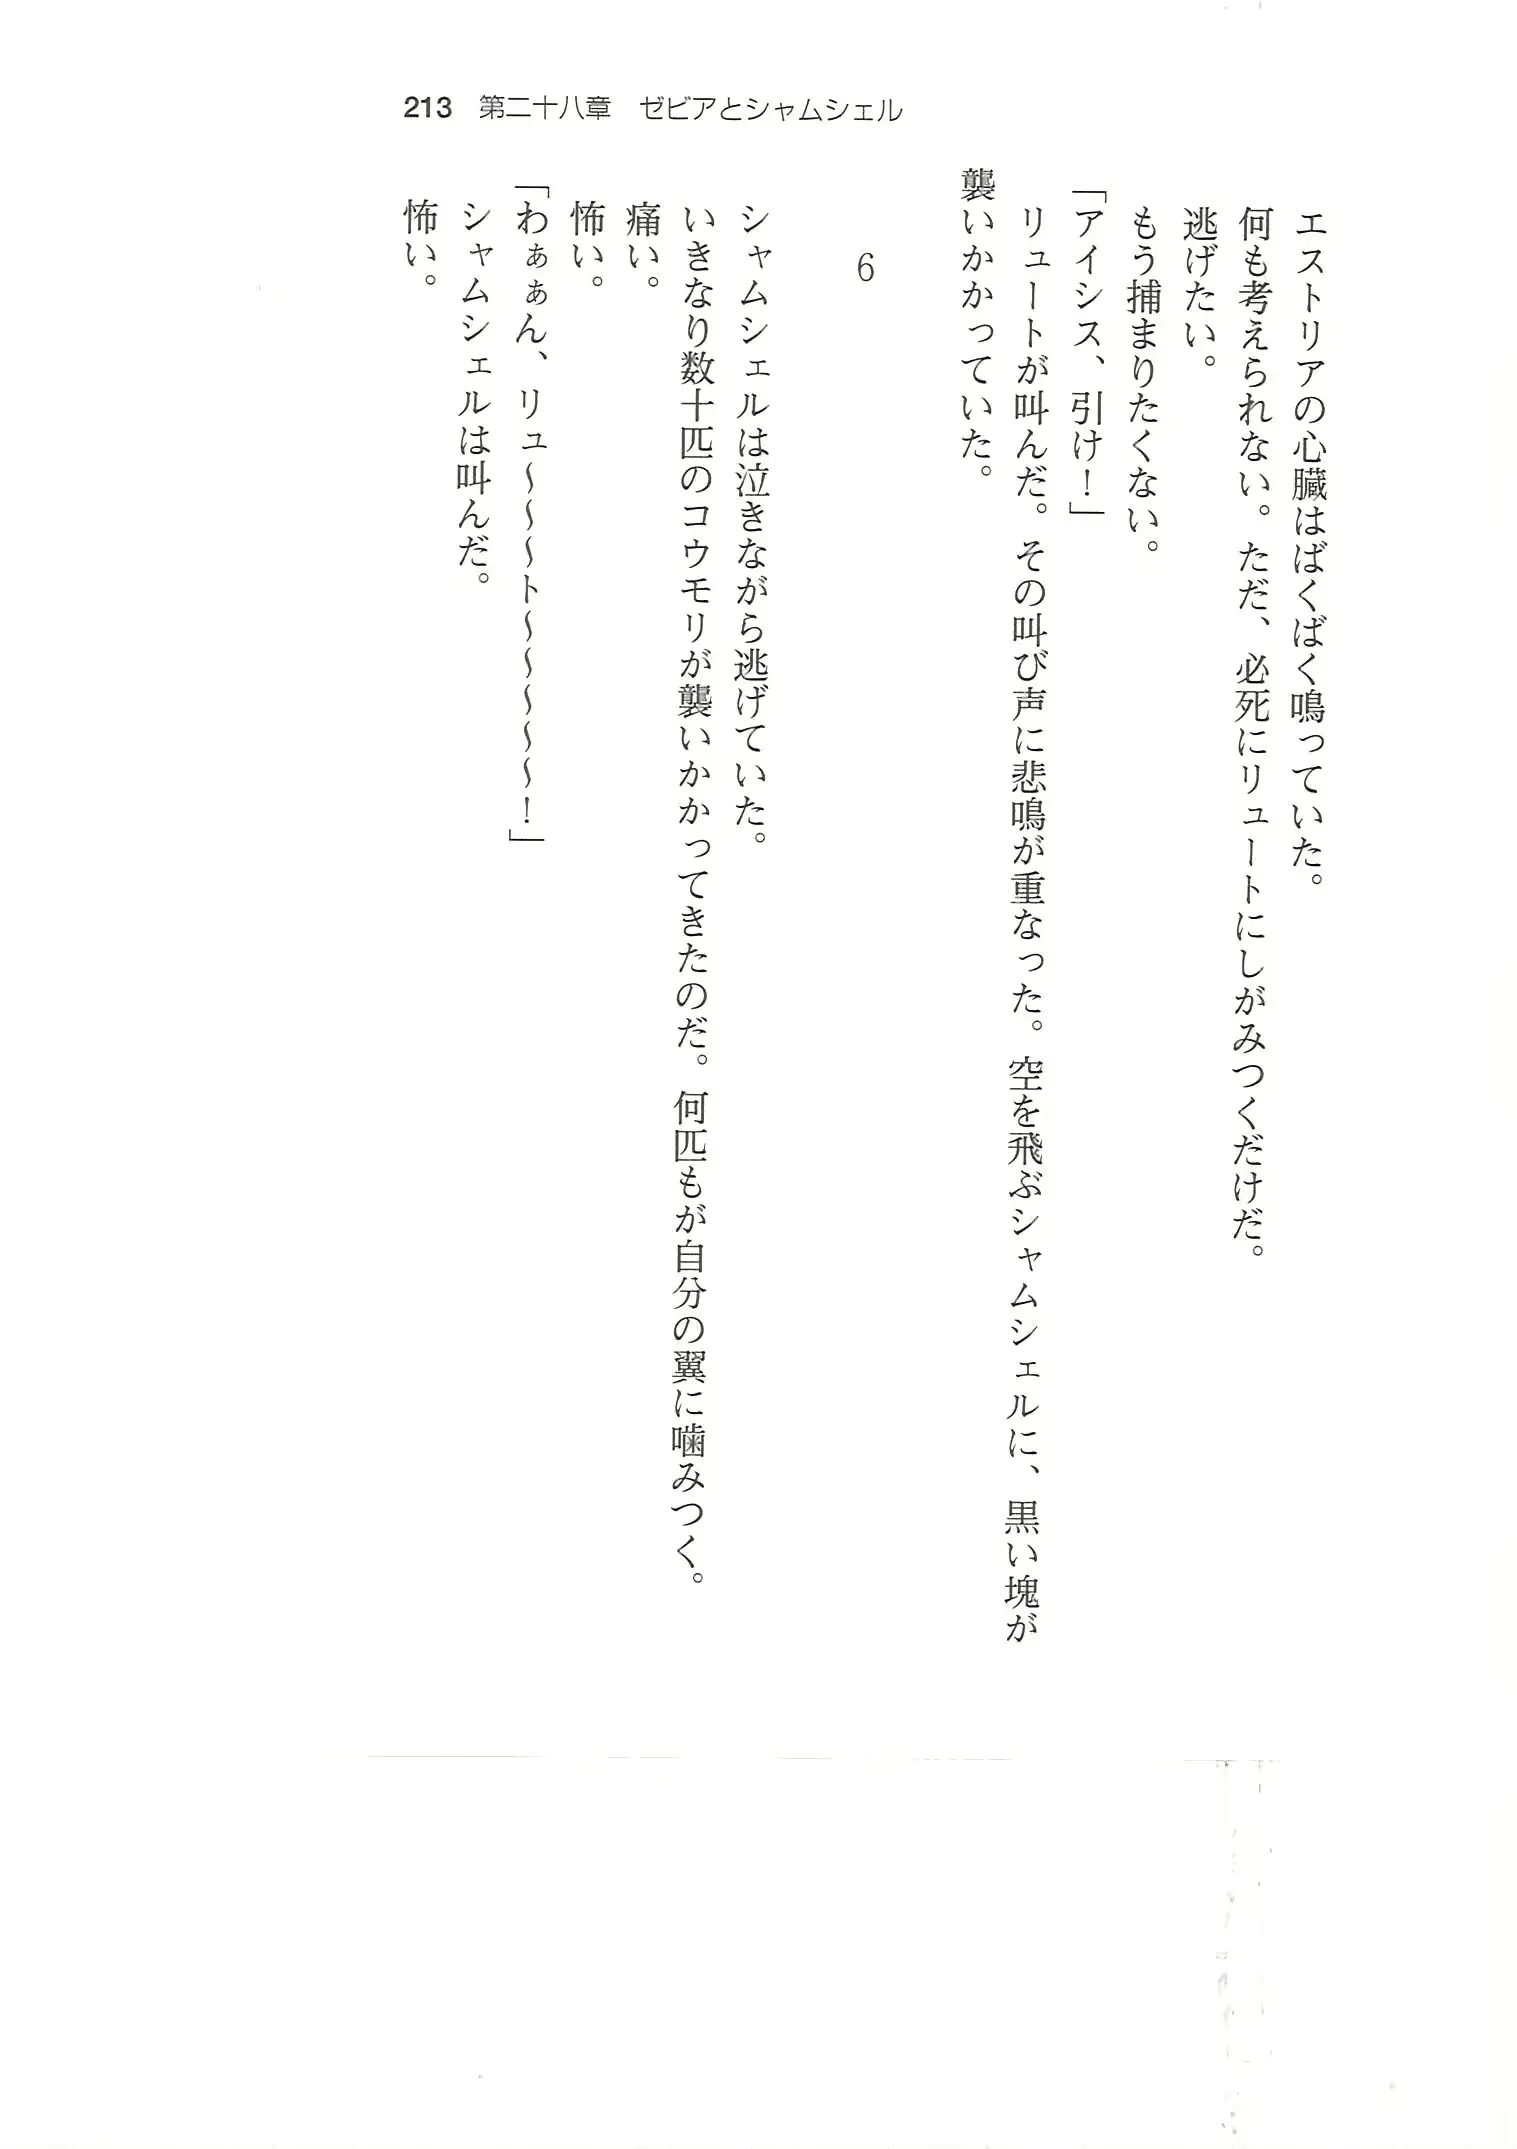 213 第二十八章 ゼビアとシャムシェル
エストリアの心臓はばくばく鳴っていた。
何も考えられない。ただ、必死にリュートにしがみつくだけだ。
逃げたい。
もう捕まりたくない。
「アイシス、引け！」
リュートが叫んだ。その叫び声に悲鳴が重なった。空を飛ぶシャムシェルに、黒い塊が
襲いかかっていた。
6
シャムシェルは泣きながら逃げていた。
いきなり数十匹のコウモリが襲いかかってきたのだ。何匹もが自分の翼に噛みつく。
痛い。
怖い。
「わぁぁん、リュ～～～ト～～～～～！」
シャムシェルは叫んだ。
怖い。